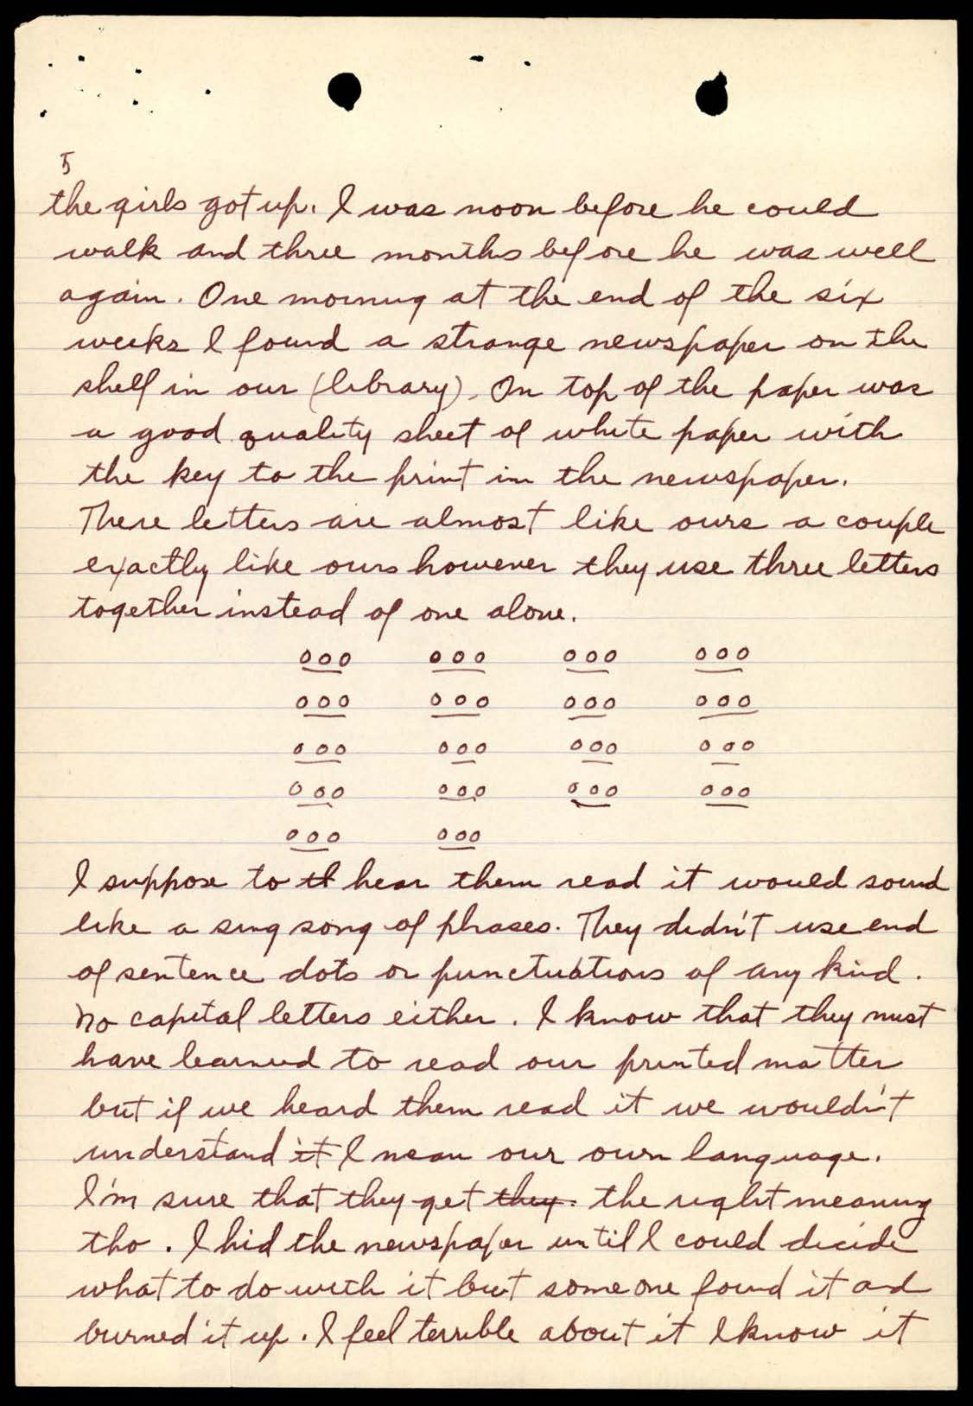 5
the girls got up. I was noon before he could
walk and three months before he was well
again. One morning at the end of the six
weeks I found a strange newspaper on the
shelf in our (library). On top of the paper was
a good quality sheet of white paper with
the key to the print in the newspaper.
There letters are almost like ours a couple
exactly like ours however they use three letters
together instead of one alone.
ooo ooo ooo ooo
ooo ooo ooo ooo
ooo ooo ooo ooo
ooo ooo ooo ooo
ooo ooo
I suppose to th hear them read it would sound
like a sing song of phrases. They didn't use end
of sentence dots or punctuations of any kind.
No capital letters either. I know that they must
have learned to read our printed matter
but if we heard them read it we wouldn't
understand it I mean our own language.
I'm sure that they get they. the right meaning
tho. I hid the newspaper until I could decide
what to do with it but someone found it and
burned it up. I feel terrible about it I know it